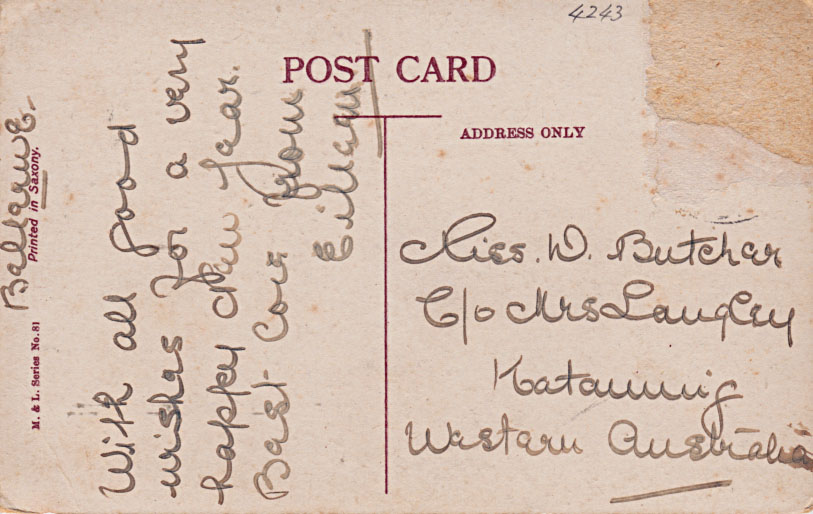 4243
POST CARD
ADDRESS ONLY
M. & L. Series No. 81
Printed in Saxony.
With all good
wishes for a very
happy New Year.
Best from
Miss. D. Butcher
C/o Mrs Langley
Katanning
Western Australia